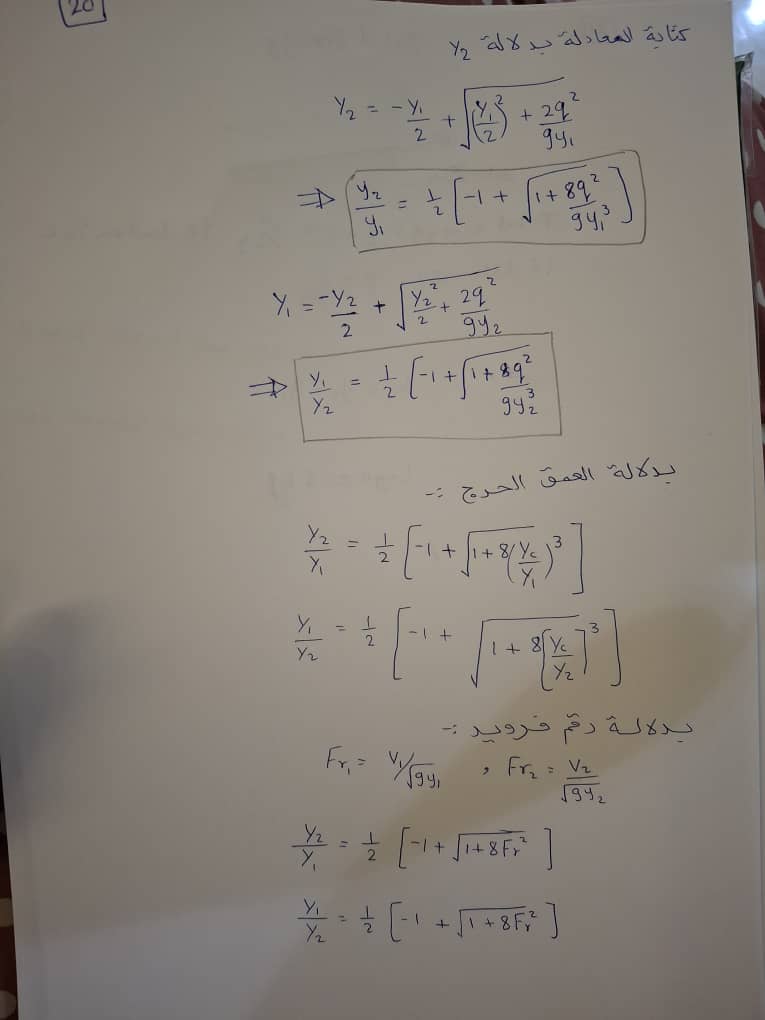 20
كتابة المعادلة بدلالة y₂
y₂ = -y₁/2 + √((y₁/2)² + 2q²/gy₁)
⇒ y₂/y₁ = 1/2 [-1 + √(1 + 8q²/gy₁³)]
y₁ = -y₂/2 + √(y₂²/2 + 2q²/gy₂)
⇒ y₁/y₂ = 1/2 [-1 + √(1 + 8q²/gy₂³)]
بدلالة العمق الحرج :-
y₂/y₁ = 1/2 [-1 + √(1 + 8(yc/y₁)³)]
y₁/y₂ = 1/2 [-1 + √(1 + 8[yc/y₂]³)]
بدلالة رقم فرويد :-
Fr₁ = V₁/√gy₁ , Fr₂ = V₂/√gy₂
y₂/y₁ = 1/2 [-1 + √(1+8Fr²)]
y₁/y₂ = 1/2 [-1 + √(1+8Fr²)]